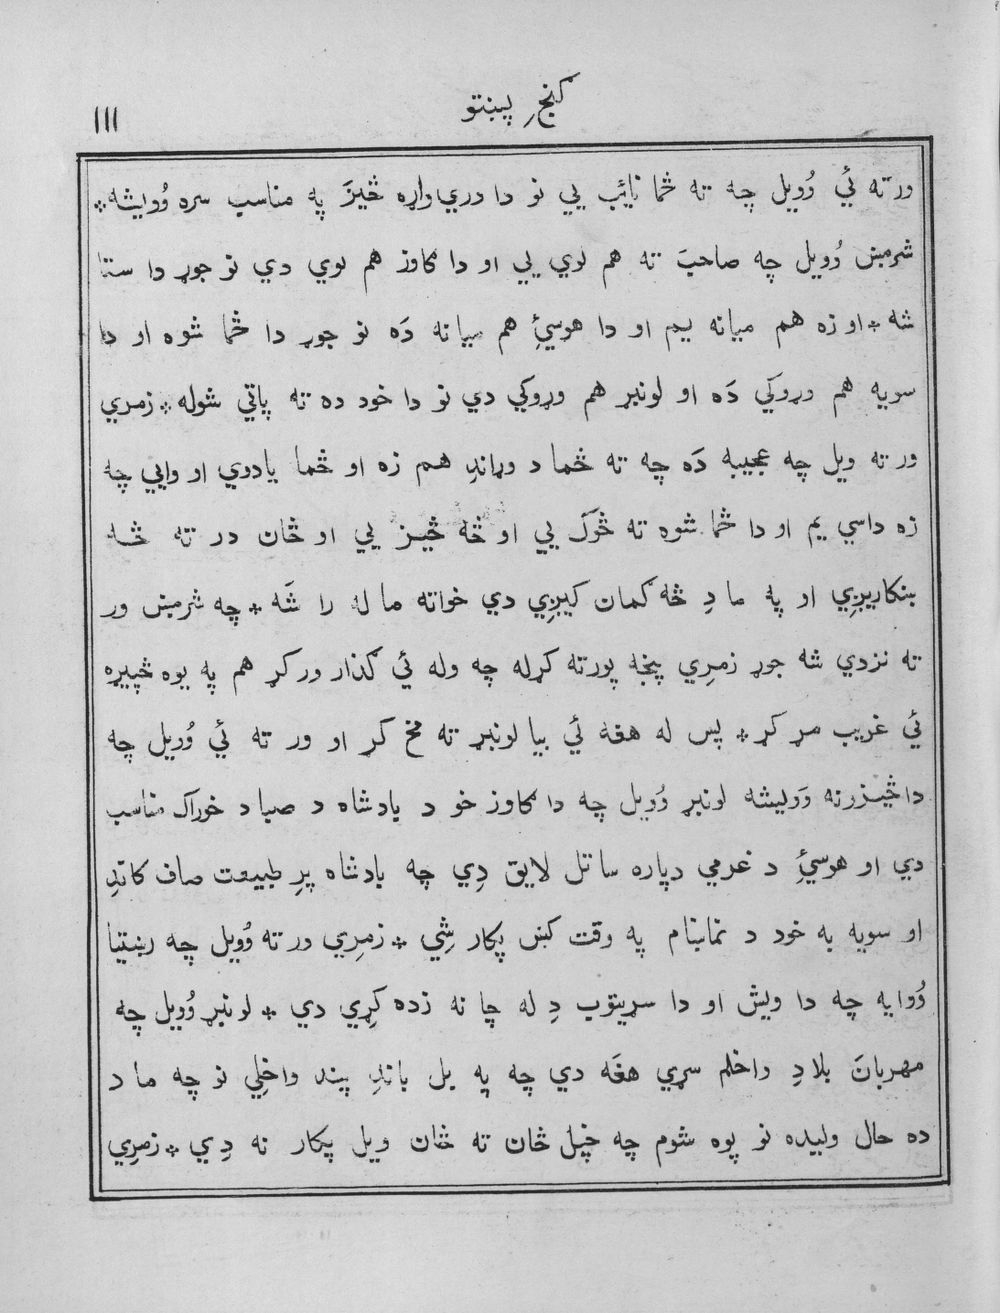 گنجِ پښتو
۱۱۱
ورته ئي وُويل چه ته څما نائب يي نو دا دري واړه څيزَ په مناسب سره وُويشه *
شرمښ وُويل چه صاحبَ ته هم لوي يي او دا کاوز هم لوي دي نو جوړ دا ستا
شه * او زه هم ميانه يم او دا هوسئِ هم ميانه دَه نو جوړ دا څما شوه او دا
سويه هم وړوکي دَه او لونبړ هم وړوکي دي نو دا خود ده ته پاتي شوله * زمري
ورته ويل چه عجيبه دَه چه ته څما د وړاندِ هم زه او څما يادوي او وايي چه
زه داسي يم او دا څما شوه ته څوک يي او څه څيز يي او ځان در ته څه
ښکاريږِي او په ما دِ څه گمان کيږِي دي خواته ما له را شَه * چه شرمښ ور
ته نزدي شه جوړ زمرِي پنجه پورته کړله چه وله ئي گذار ورکړ هم په يوه څپيړه
ئي غريب مړ کړ * پس له هغه ئي بيا لونبړ ته مخ کړ او ور ته ئي وُويل چه
دا څيزرنه وَويشه لونبړ وُويل چه دا کاوز خو د پادشاه د صبا د خوراک مناسب
دي او هوسئِ د غرمي دپاره ساتل لايق دِي چه بادشاه پرِ طبيعت صاف کاندِ
او سويه به خود د نماښام په وقت کښ پکار شِي * زمرِي ورته وُويل چه رښتيا
وُوايه چه دا ويش او دا سړيتوب دِ له چا نه زده کړِي دي * لونبړ وُويل چه
مهربانَ بلادِ واخلم سړي هغَه دي چه په بل باندِ پند واخلِي نو چه ما د
ده حال وليده نو پوه شوم چه خپل ځان ته ځان ويل پکار نه دِي * زمرِي